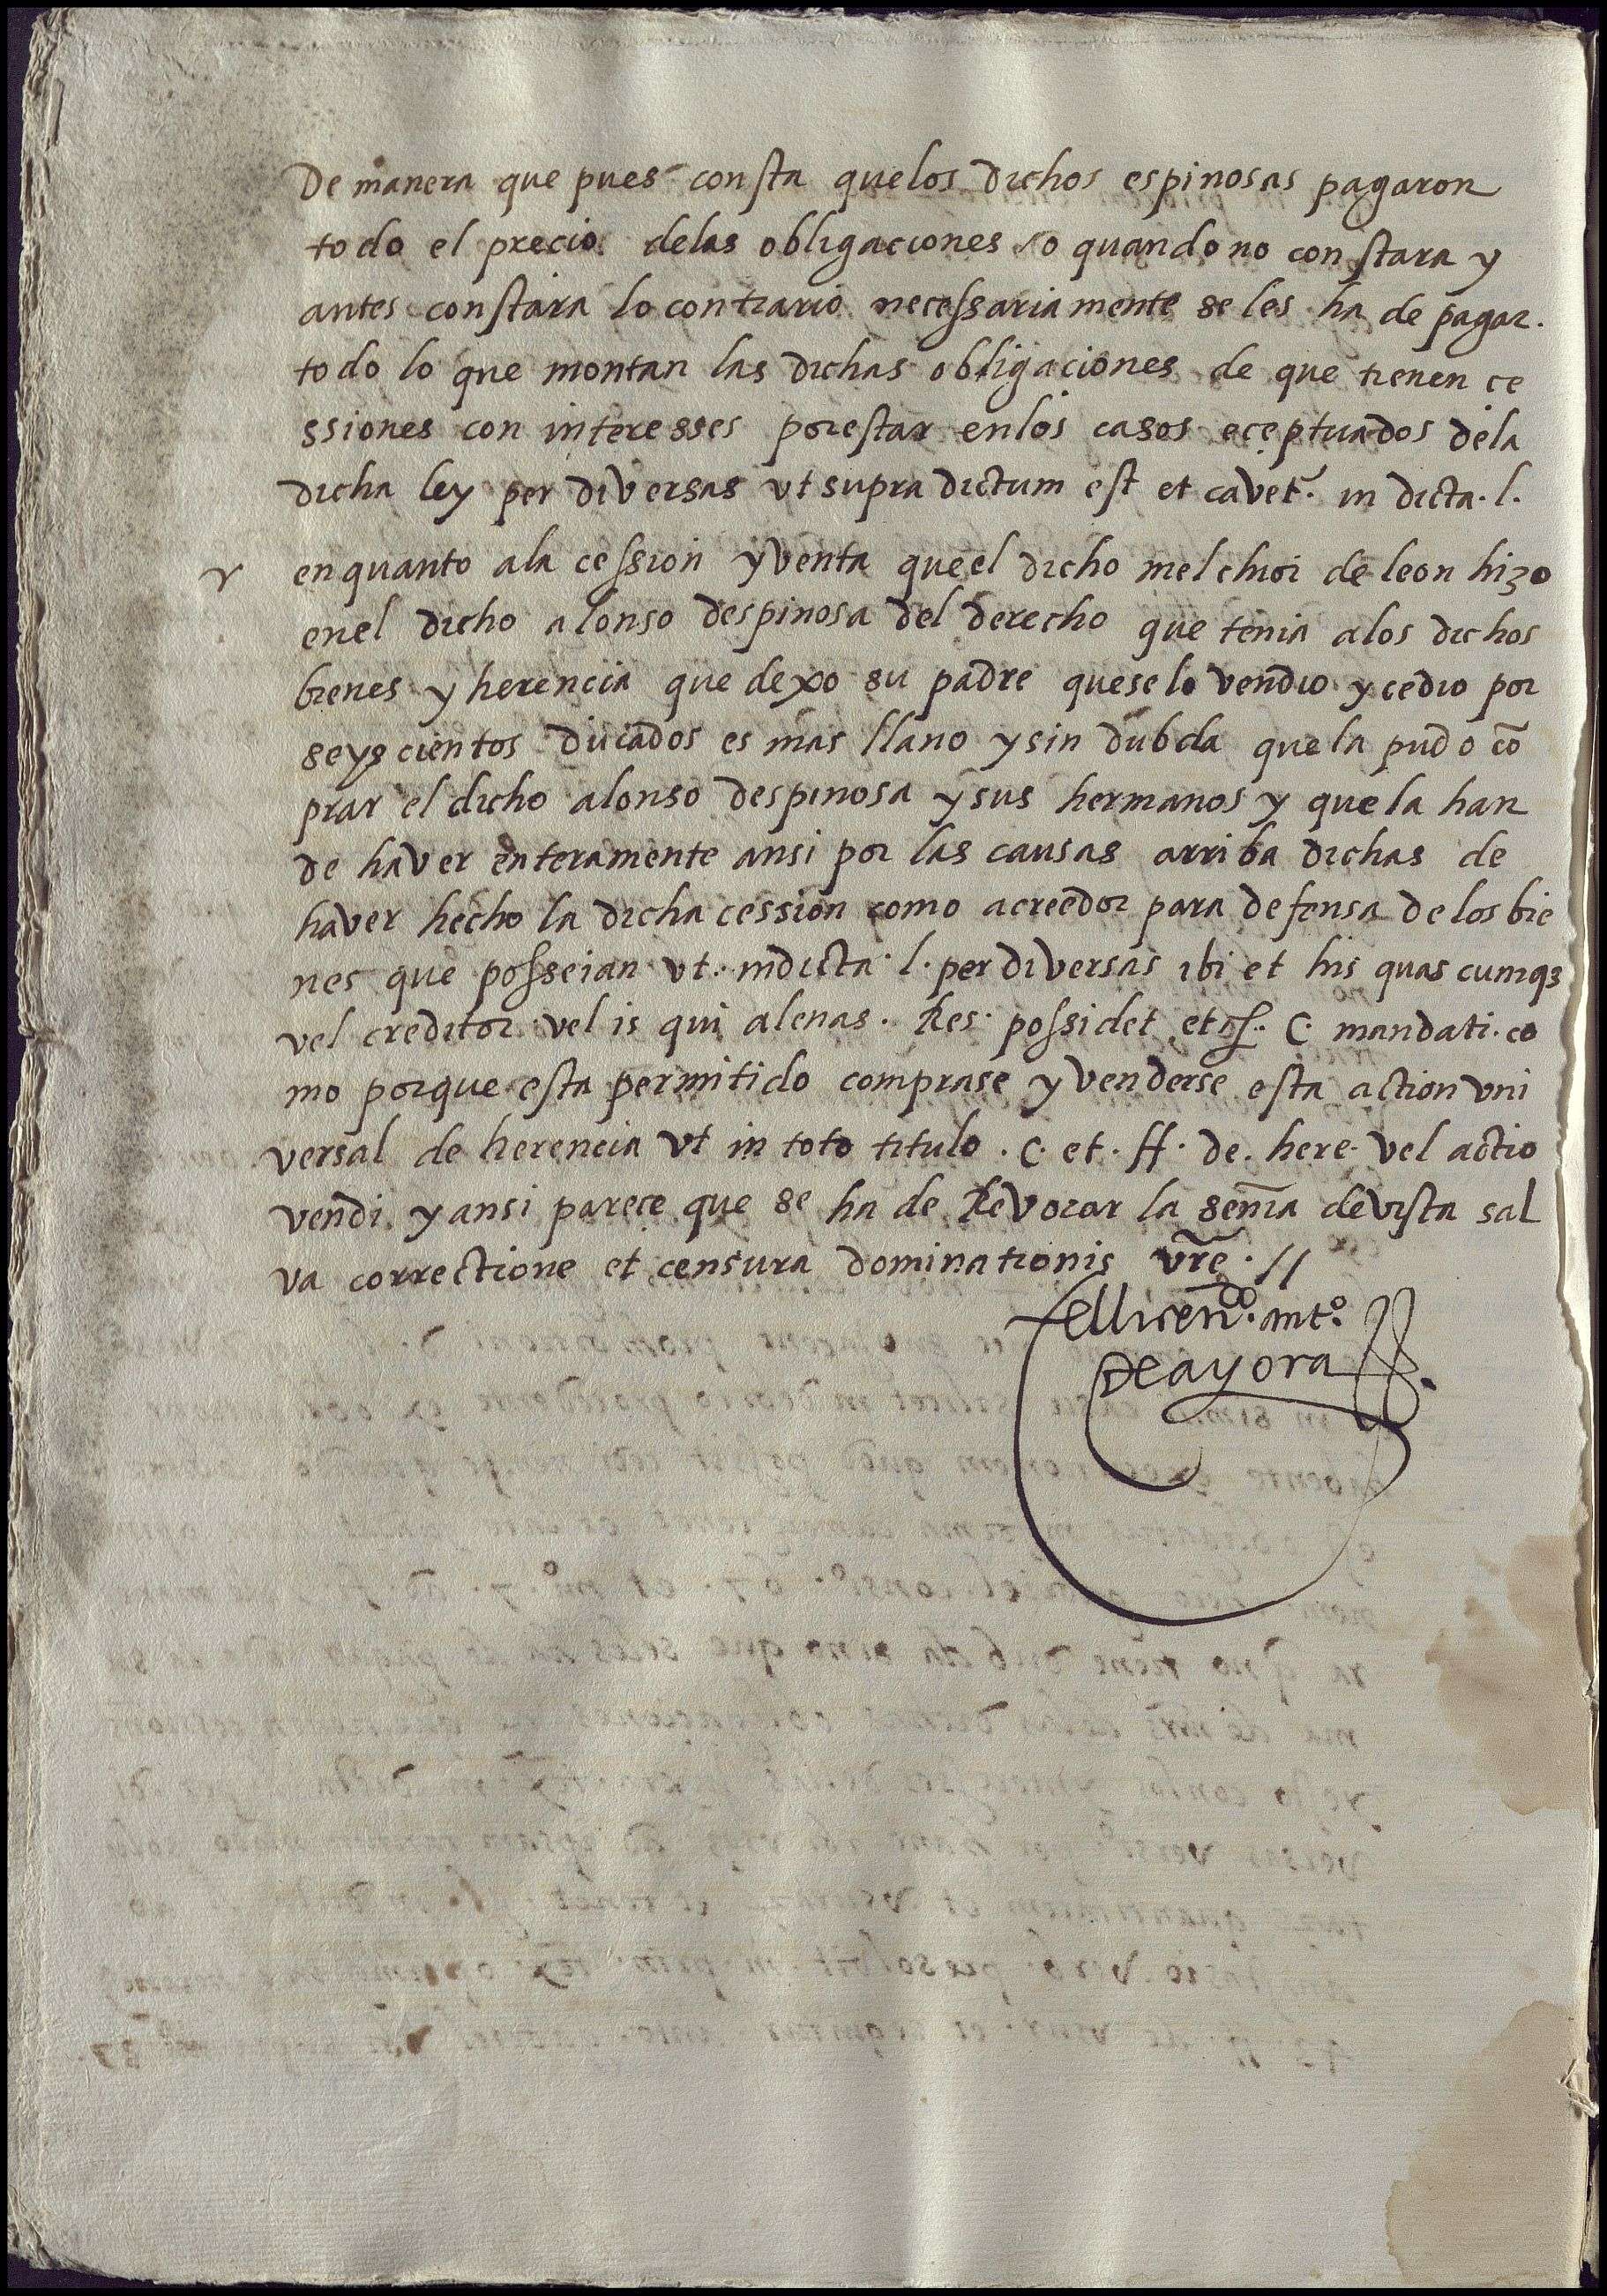 De manera que pues consta quelos dichos espinosas pagaron
todo el precio delas obligaciones o quando no constara y
antes constara lo contrario necessariamente se les ha de pagar.
todo lo que montan las dichas obligaciones de que tienen ce
ssiones con interesses por estar enlos casos eçeptuados dela
dicha ley per diversas vt supra dictum est et cavet̃. in dicta. l.
Y enquanto ala cession y venta queel dicho melchior de leon hizo
enel dicho alonso despinosa del derecho que tenia alos dichos
bienes y herencia que dexo su padre quese lo vendio y cedio por
seys cientos ducados es mas llano y sin dubda quela pudo cõ
prar el dicho alonso despinosa y sus hermanos y quela han
de haver enteramente ansi por las causas arriba dichas de
haver hecho la dicha cession como acreedor para defensa de los bie
nes que posseian vt. indicta. l. per diversas ibi et his quas cumqʒ
vel creditor vel is qui alenas. Res. possidet et ff. C. mandati. co
mo porque esta permitido comprase y venderse esta action vni
versal de herencia vt in toto titulo . C. et. ff. de. here. vel actio
vendi. y ansi pareçe que se ha de Revocar la senĩa de vista sal
va correctione et censura dominationis vr̃e. //
el licendo. anto.
De ayora